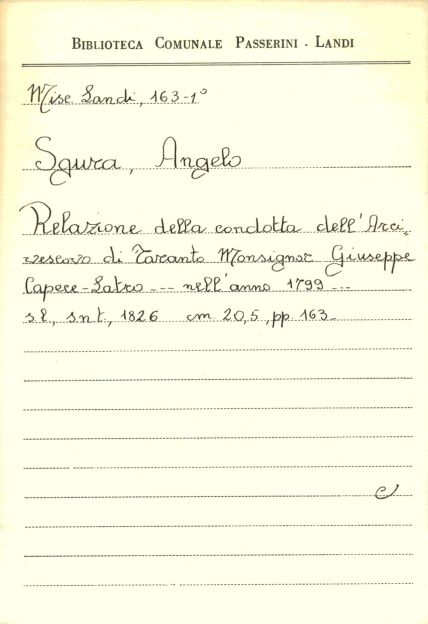 BIBLIOTECA COMUNALE PASSERINI - LANDI
Misc Landi, 163-1°
Sgura, Angelo
Relazione della condotta dell'Arci-
vescovo di Taranto Monsignor Giuseppe
Capece-Latro --- nell'anno 1799 ---
s.l., s.n.t., 1826 cm 20,5, pp. 163-